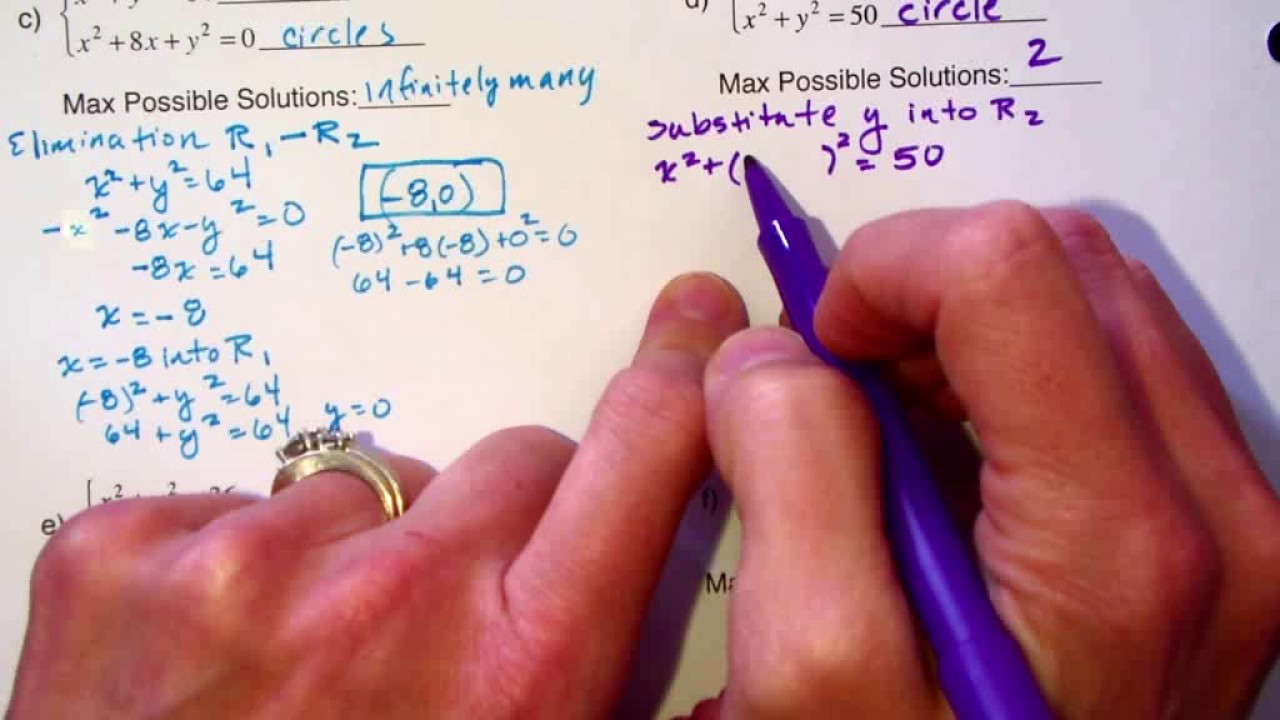 c)
x² + 8x + y² = 0 circles
Max Possible Solutions: Infinitely many
Elimination R₁ - R₂
x² + y² = 64
-x² - 8x - y² = 0
-8x = 64
x = -8
x = -8 into R₁
(-8)² + y² = 64
64 + y² = 64 y = 0
(-8,0)
(-8)² + 8(-8) + 0² = 0
64 - 64 = 0
e)
x² + y² = 50 circle
Max Possible Solutions: 2
Substitute y into R₂
x² + ( )² = 50
f)